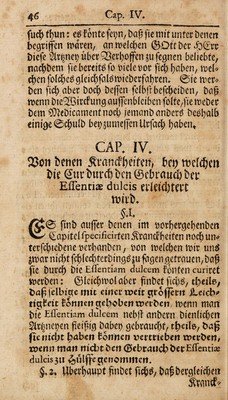 46 Cap. IV.
such thun: es könte seyn, daß sie mit unter denen
begriffen wären, an welchen GOtt der HErr
diese Artzney über Verhoffen zu segnen beliebte,
nachdem sie bereits so viele vor sich haben, wel-
chen solches gleichfals wiederfahren. Sie wer-
den sich aber doch dessen selbst bescheiden, daß
wenn die Würckung aussenbleiben solte, sie weder
dem Medicament noch jemand anders deshalb
einige Schuld beyzumessen Ursach haben.
CAP. IV.
Von denen Kranckheiten, bey welchen
die Cur durch den Gebrauch der
Essentiæ dulcis erleichtert
wird.
§. I.
ES sind ausser denen im vorhergehenden
Capitel specificirten Kranckheiten noch un-
terschiedene verhanden, von welchen wir uns
zwar nicht schlechterdings zu sagen getrauen, daß
sie durch die Essentiam dulcem könten curiret
werden: Gleichwol aber findet sichs, theils,
daß selbige mit einer weit grössern Leich-
tigkeit können gehoben werden, wenn man
die Essentiam dulcem nebst andern dienlichen
Artzneyen fleißig dabey gebraucht, theils, daß sie
nicht haben können vertrieben werden,
wenn man nicht den Gebrauch der Essentiæ
dulcis zu Hülffe genommen.
§. 2. Überhaupt findet sichs, daß dergleichen
Kranck-